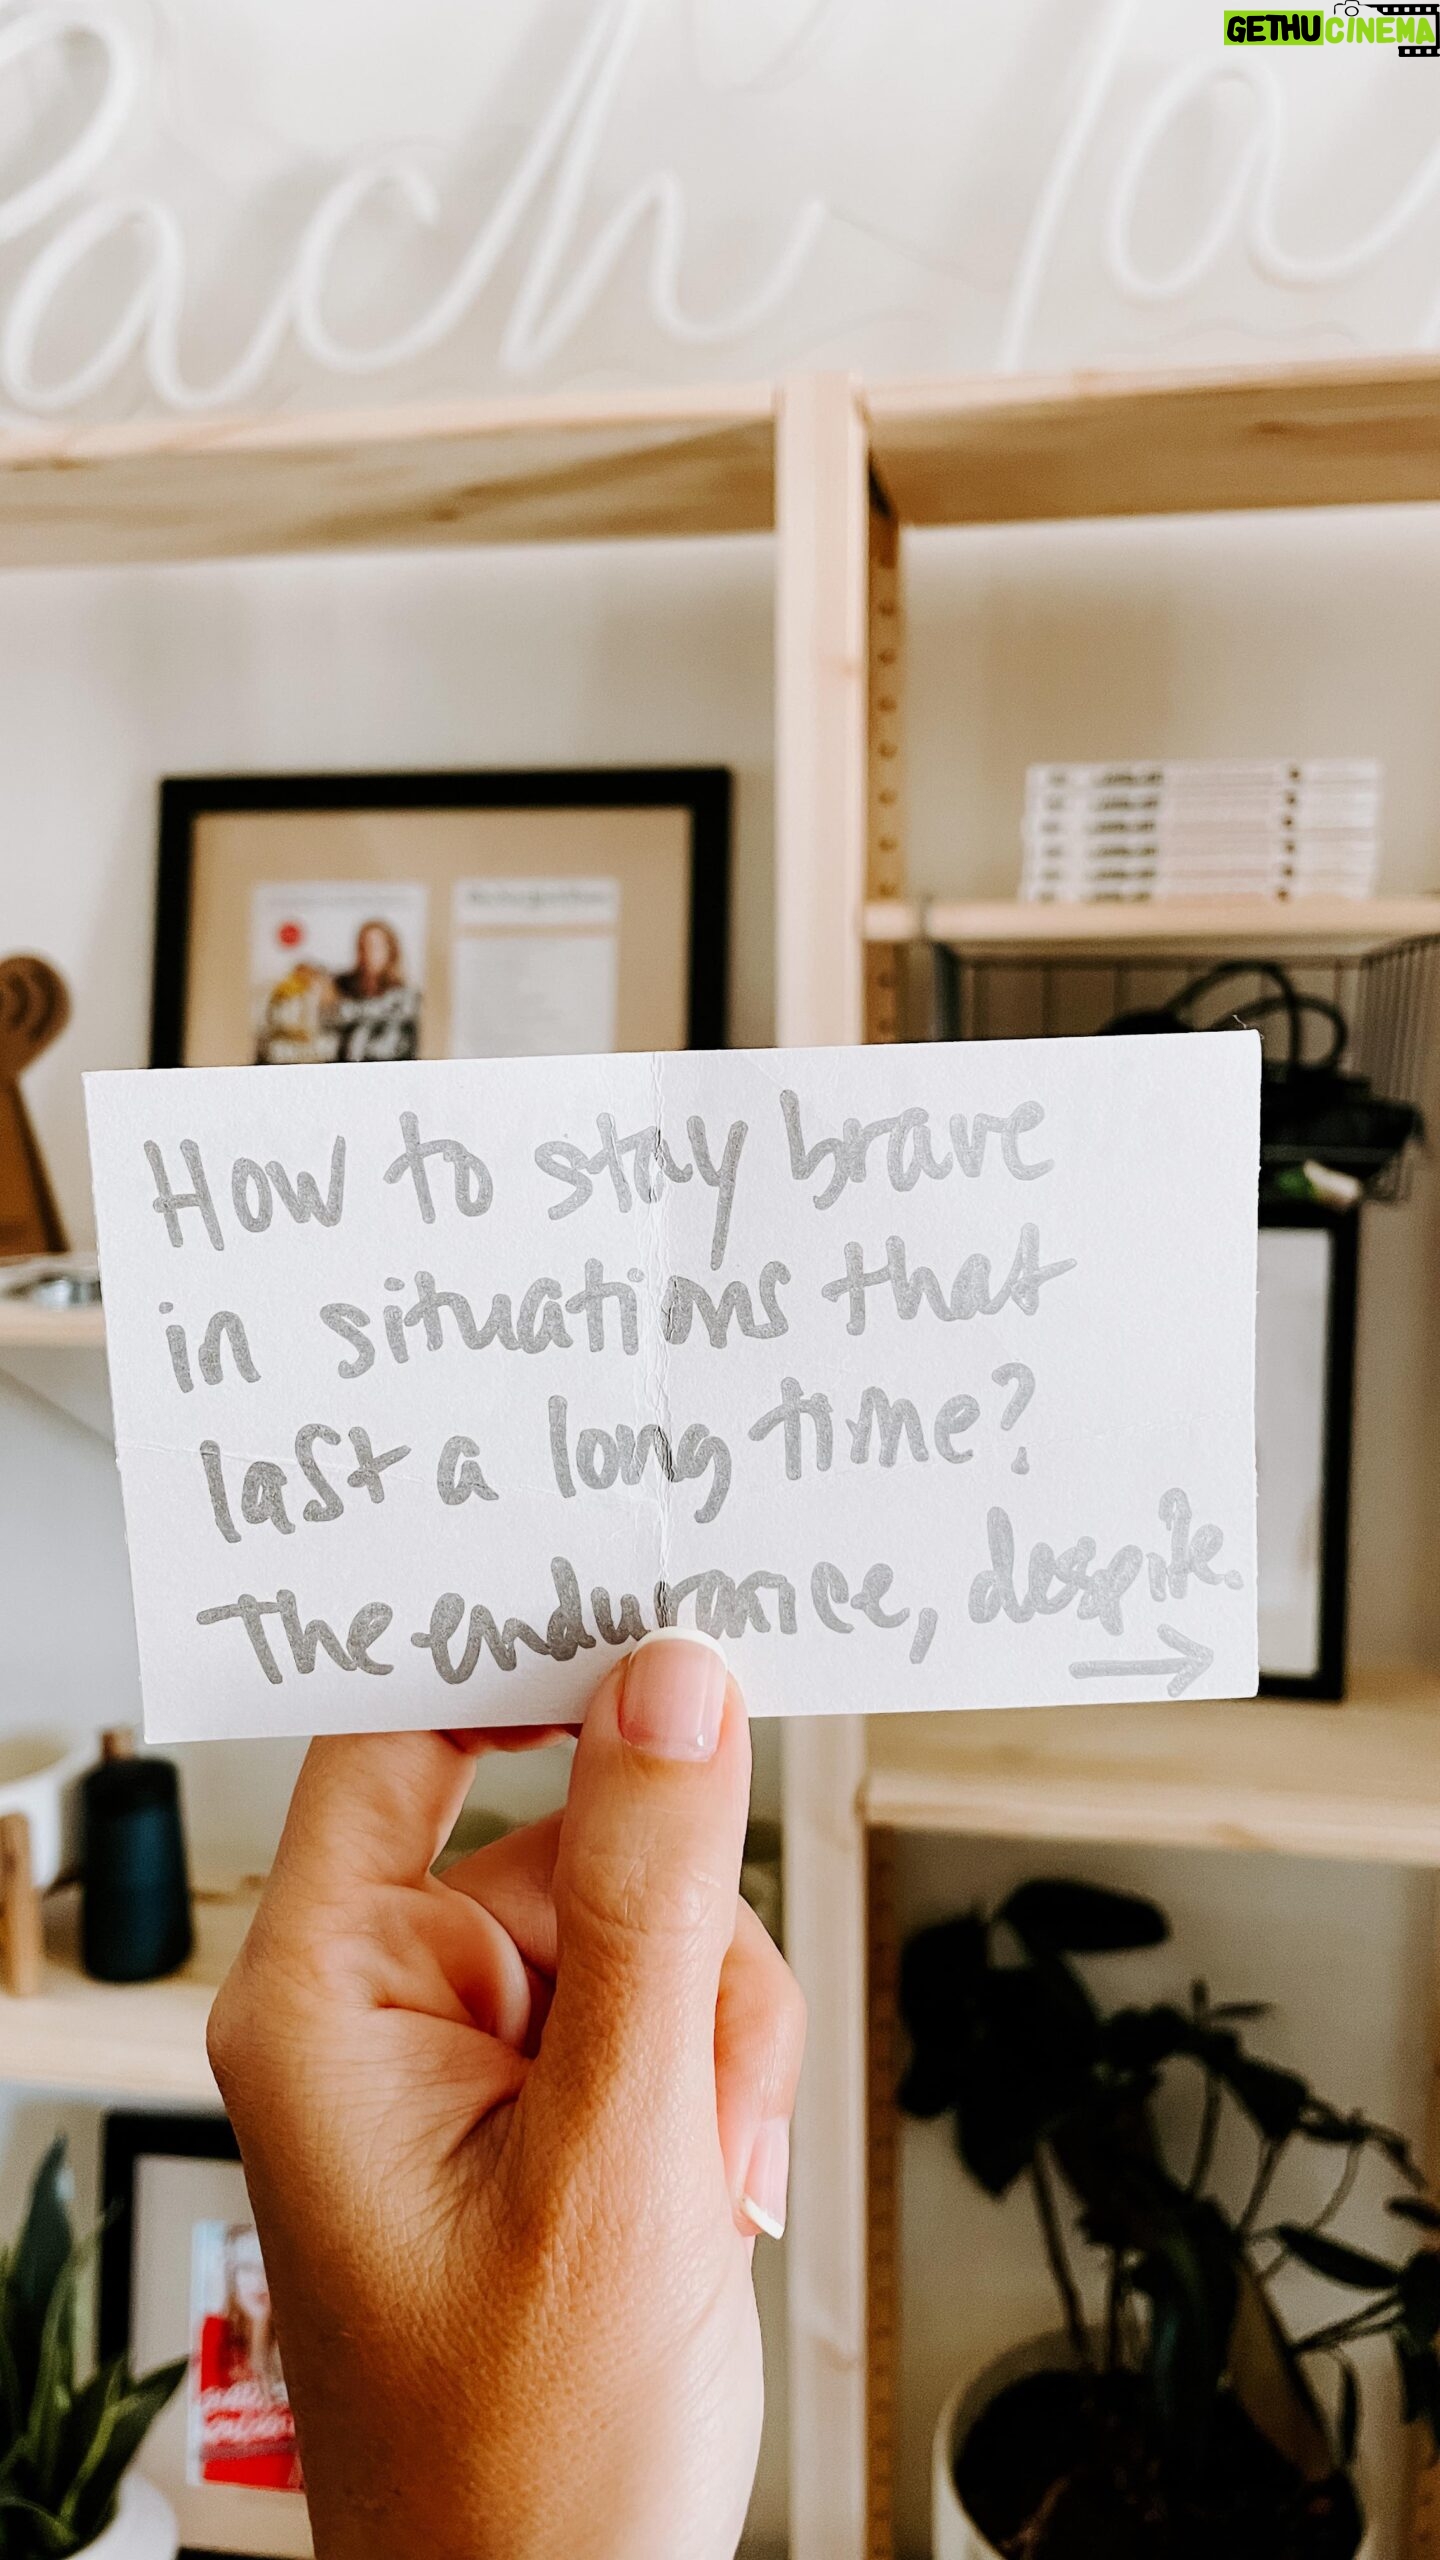 GETHUCINEMA
How to stay brave
in situations that
last a long time?
The endurance, despite.